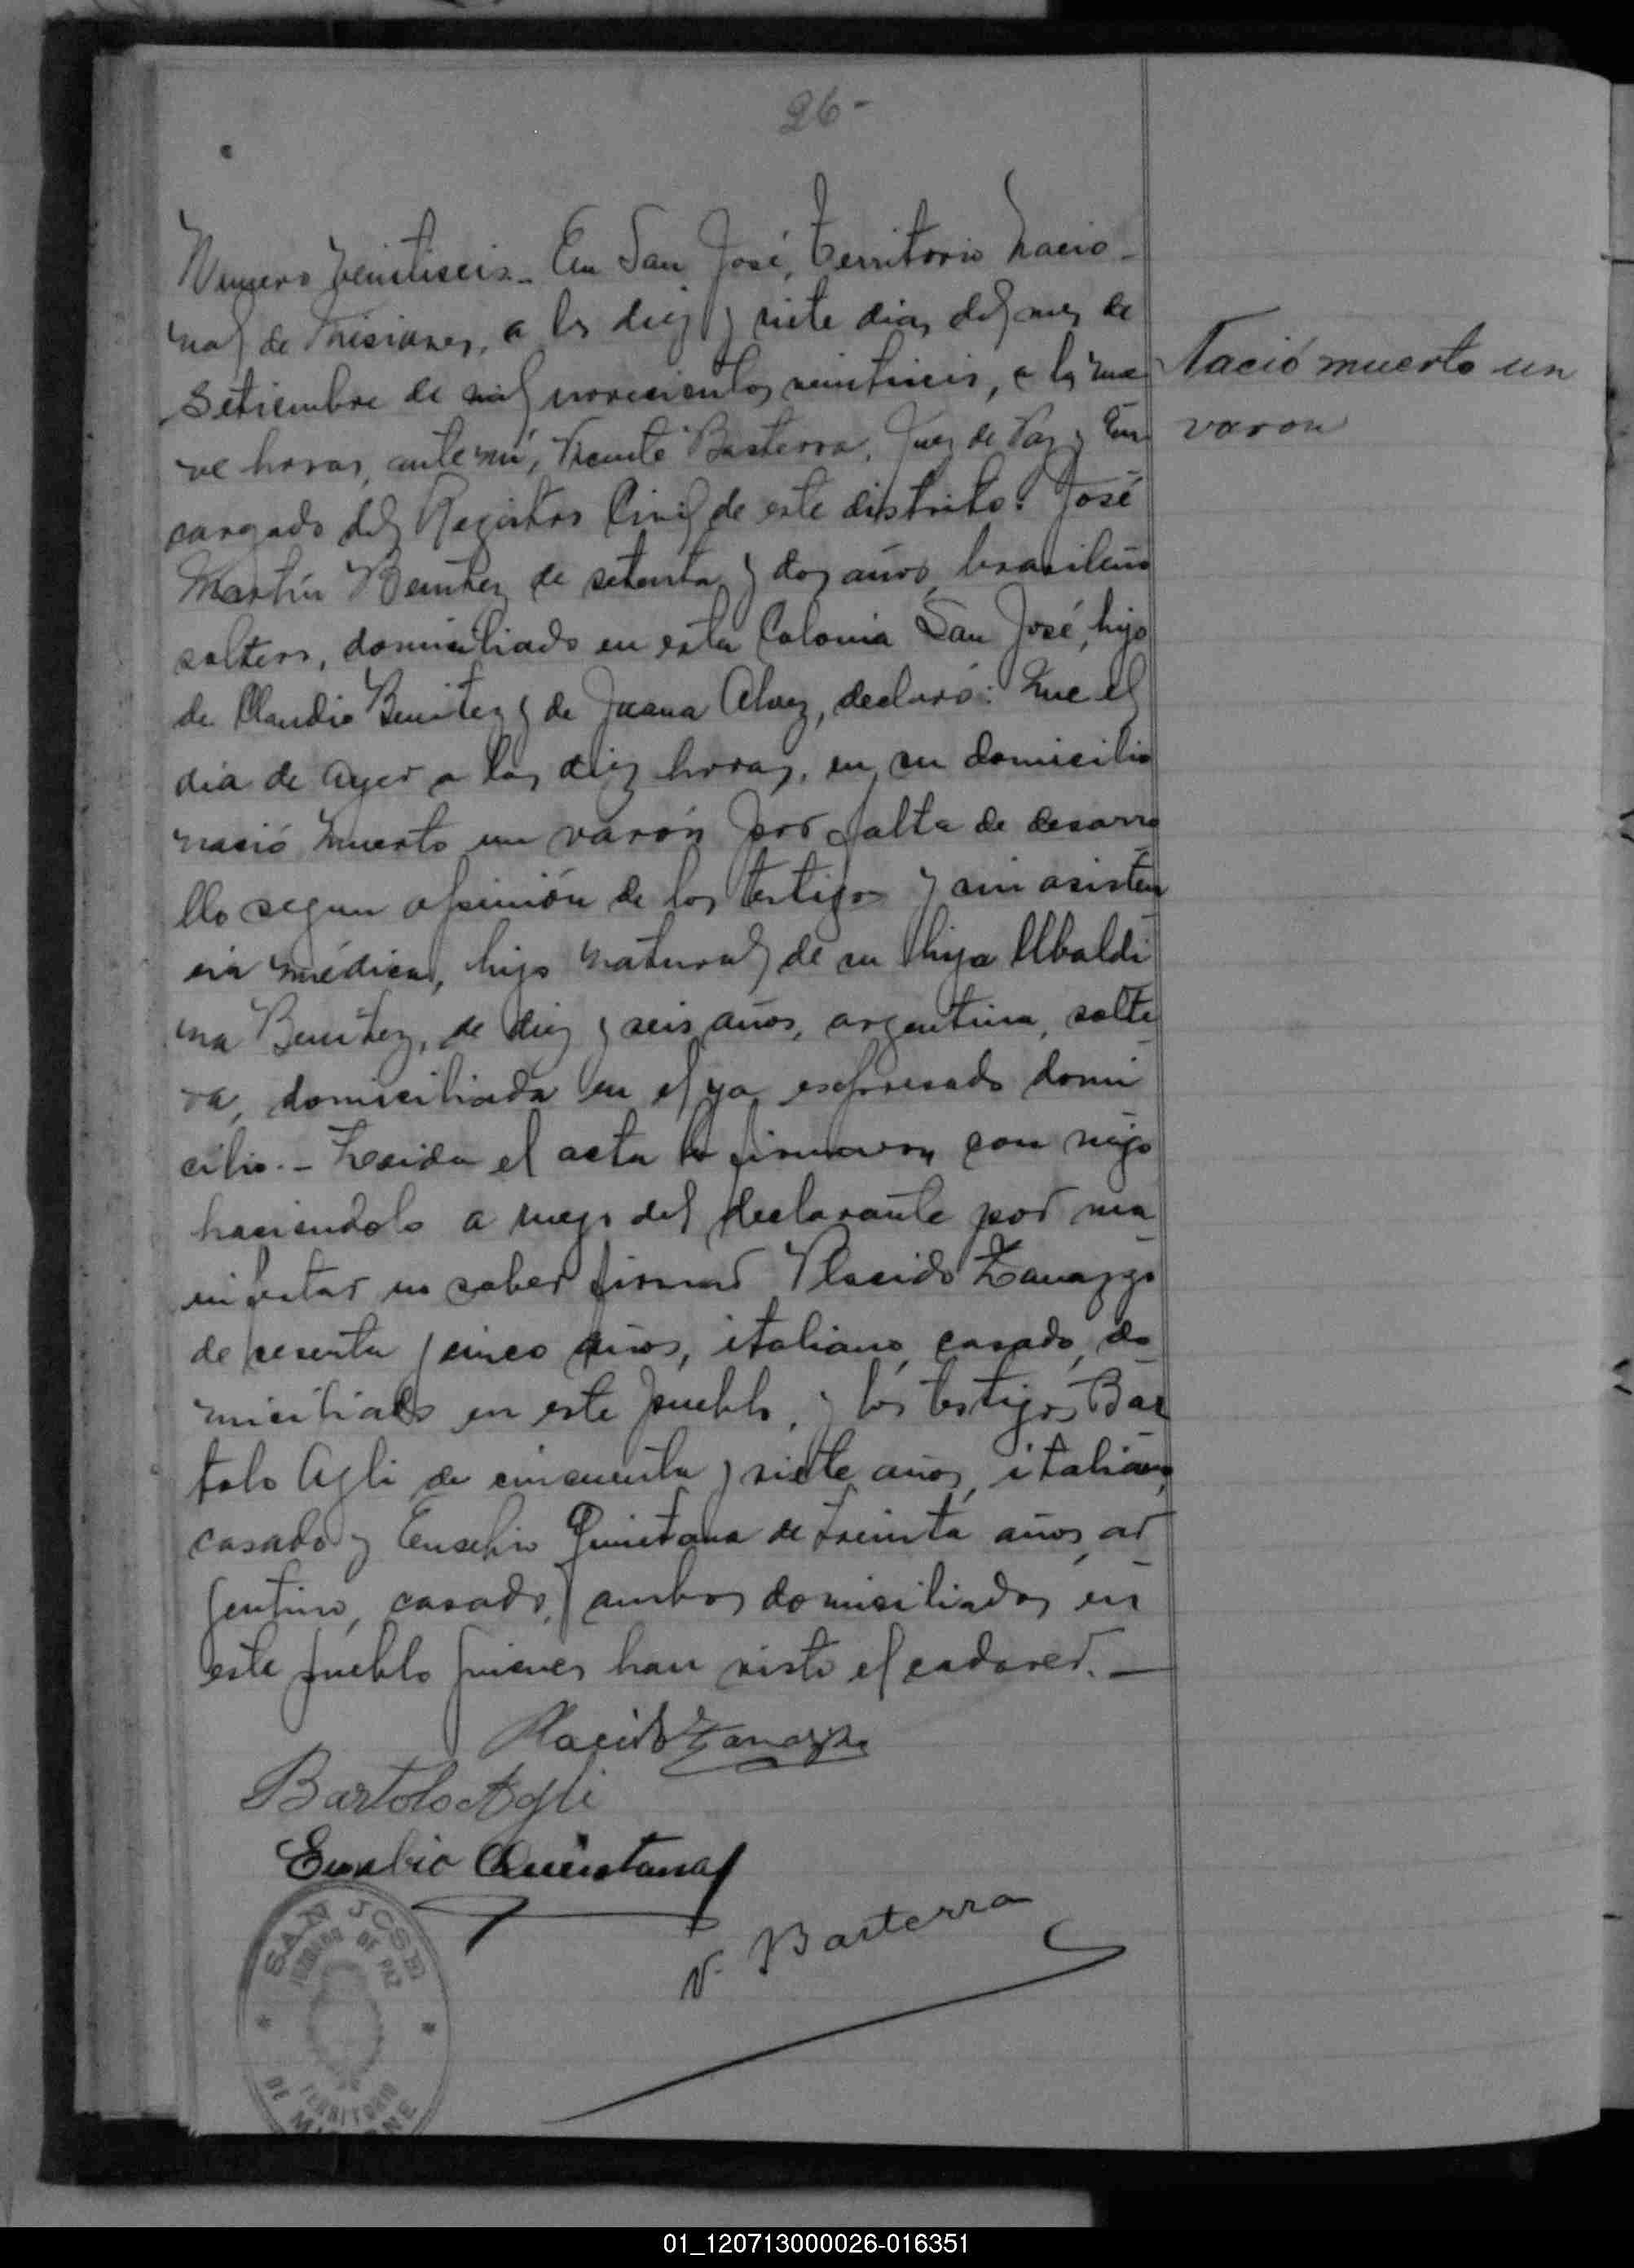 26-
Numero Veintiseis.- En San José, Territorio Nacio-
nal de Misiones, a los diez y siete dias del mes de
Setiembre de mil novecientos veintiseis, a las nue
ve horas, ante mi, Vicente Basterra, Juez de Paz y En
cargado del Registro Civil de este distrito: José
Martín Benitez de setenta y dos años, brasileño
soltero, domiciliado en esta Colonia San José, hijo
de Claudio Benitez y de Juana Alvez, declaró: Que el
dia de ayer a las diez horas, en su domicilio
nació muerto un varón por falta de desarro
llo segun opinión de los testigos y sin asisten
cia médica, hijo natural de su hija Ubaldi
na Benitez, de diez y seis años, argentina, solte
ra, domiciliada en el ya expresado domi
cilio.- Leida el acta la firmaron con migo
haciendolo a ruego del declarante por ma
nifestar no saber firmar Placido Zanazzo
de sesenta y cinco años, italiano, casado, do
miciliado en este pueblo, y los testigos Bar
tolo Agli de cincuenta y siete años, italiano,
casado y Eusebio Quintana de treinta años, ar
gentino, casado, ambos domiciliados en
este pueblo quienes han visto el cadaver.-
Nació muerto un
varon
Placido Zanazzo
Bartolo Agli
Eusebio Quintana
V. Basterra
SAN JOSE
JUZGADO DE PAZ
TERRITORIO
DE
01_120713000026-016351